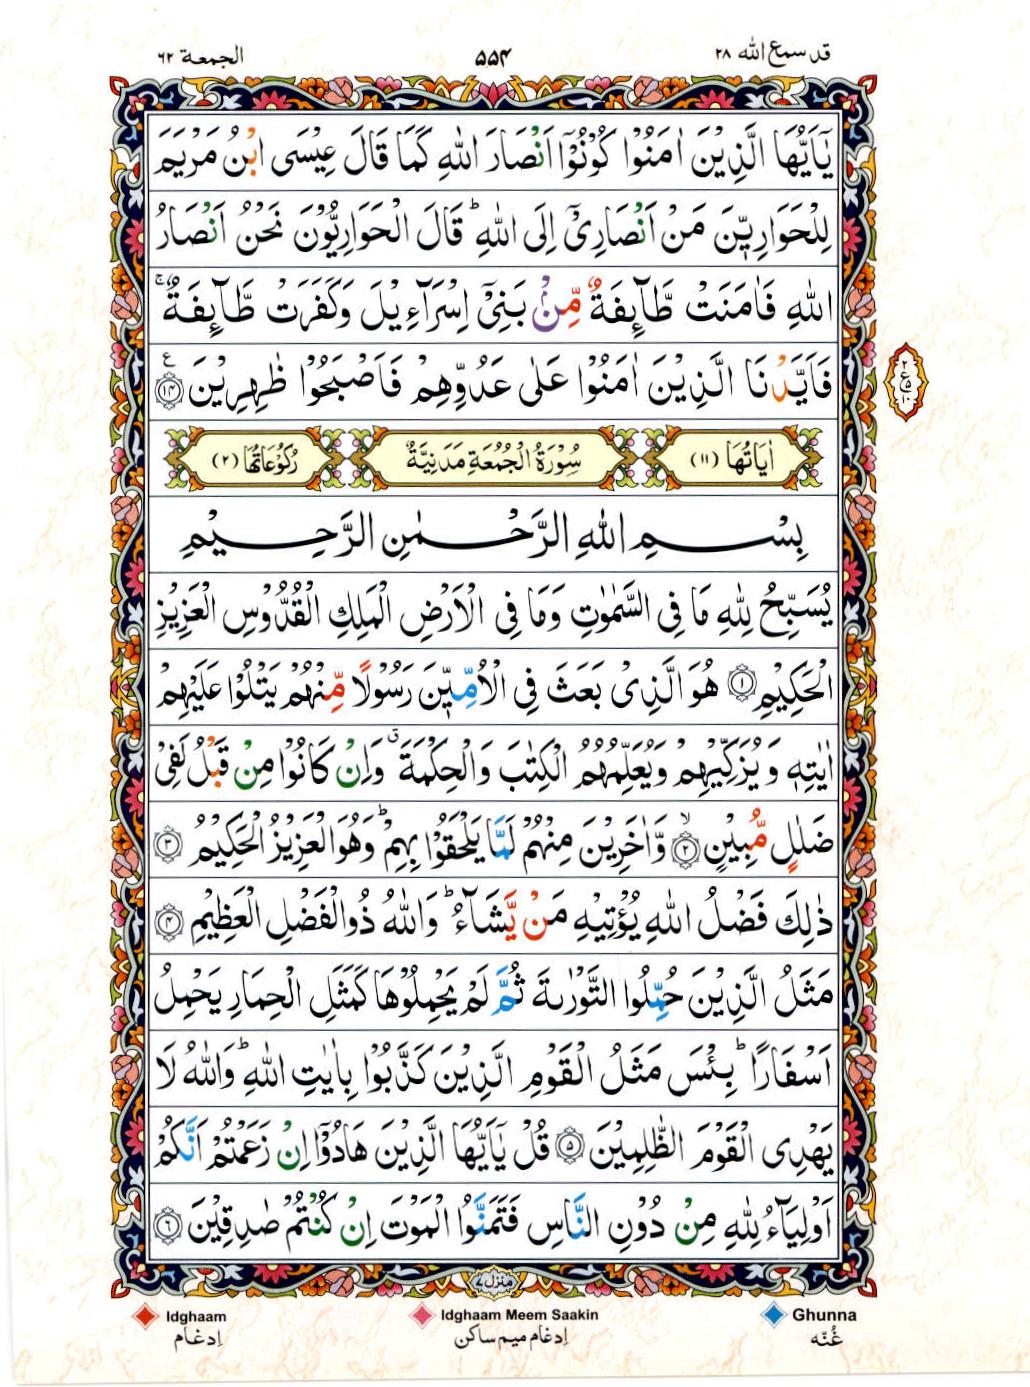 قد سمع الله ۲۸
۵۵۴
الجمعة ۶۲
يٰۤاَيُّهَا الَّذِيْنَ اٰمَنُوْا كُوْنُوْۤا اَنْصَارَ اللّٰهِ كَمَا قَالَ عِيْسَى ابْنُ مَرْيَمَ
لِلْحَوَارِيّٖنَ مَنْ اَنْصَارِىْۤ اِلَى اللّٰهِ ؕ قَالَ الْحَوَارِيُّوْنَ نَحْنُ اَنْصَارُ
اللّٰهِ فَاٰمَنَتْ طَّآئِفَةٌ مِّنْۢ بَنِىْۤ اِسْرَآءِيْلَ وَكَفَرَتْ طَّآئِفَةٌ ۚ
فَاَيَّدْنَا الَّذِيْنَ اٰمَنُوْا عَلٰى عَدُوِّهِمْ فَاَصْبَحُوْا ظٰهِرِيْنَ ﴿۱۴﴾ ع
اٰيَاتُهَا (۱۱) سُوْرَةُ الْجُمُعَةِ مَدَنِيَّةٌ رُكُوْعَاتُهَا (۲)
بِسْمِ اللّٰهِ الرَّحْمٰنِ الرَّحِيْمِ
يُسَبِّحُ لِلّٰهِ مَا فِى السَّمٰوٰتِ وَمَا فِى الْاَرْضِ الْمَلِكِ الْقُدُّوْسِ الْعَزِيْزِ
الْحَكِيْمِ ﴿۱﴾ هُوَ الَّذِىْ بَعَثَ فِى الْاُمِّيّٖنَ رَسُوْلًا مِّنْهُمْ يَتْلُوْا عَلَيْهِمْ
اٰيٰتِهٖ وَيُزَكِّيْهِمْ وَيُعَلِّمُهُمُ الْكِتٰبَ وَالْحِكْمَةَ ۗ وَاِنْ كَانُوْا مِنْ قَبْلُ لَفِىْ
ضَلٰلٍ مُّبِيْنٍ ۙ﴿۲﴾ وَّاٰخَرِيْنَ مِنْهُمْ لَمَّا يَلْحَقُوْا بِهِمْ ؕ وَهُوَ الْعَزِيْزُ الْحَكِيْمُ ﴿۳﴾
ذٰلِكَ فَضْلُ اللّٰهِ يُؤْتِيْهِ مَنْ يَّشَآءُ ؕ وَاللّٰهُ ذُو الْفَضْلِ الْعَظِيْمِ ﴿۴﴾
مَثَلُ الَّذِيْنَ حُمِّلُوا التَّوْرٰىةَ ثُمَّ لَمْ يَحْمِلُوْهَا كَمَثَلِ الْحِمَارِ يَحْمِلُ
اَسْفَارًا ؕ بِئْسَ مَثَلُ الْقَوْمِ الَّذِيْنَ كَذَّبُوْا بِاٰيٰتِ اللّٰهِ ؕ وَاللّٰهُ لَا
يَهْدِى الْقَوْمَ الظّٰلِمِيْنَ ﴿۵﴾ قُلْ يٰۤاَيُّهَا الَّذِيْنَ هَادُوْۤا اِنْ زَعَمْتُمْ اَنَّكُمْ
اَوْلِيَآءُ لِلّٰهِ مِنْ دُوْنِ النَّاسِ فَتَمَنَّوُا الْمَوْتَ اِنْ كُنْتُمْ صٰدِقِيْنَ ﴿۶﴾
منزل ۷
Idghaam
ادغام
Idghaam Meem Saakin
ادغام میم ساکن
Ghunna
غُنّه